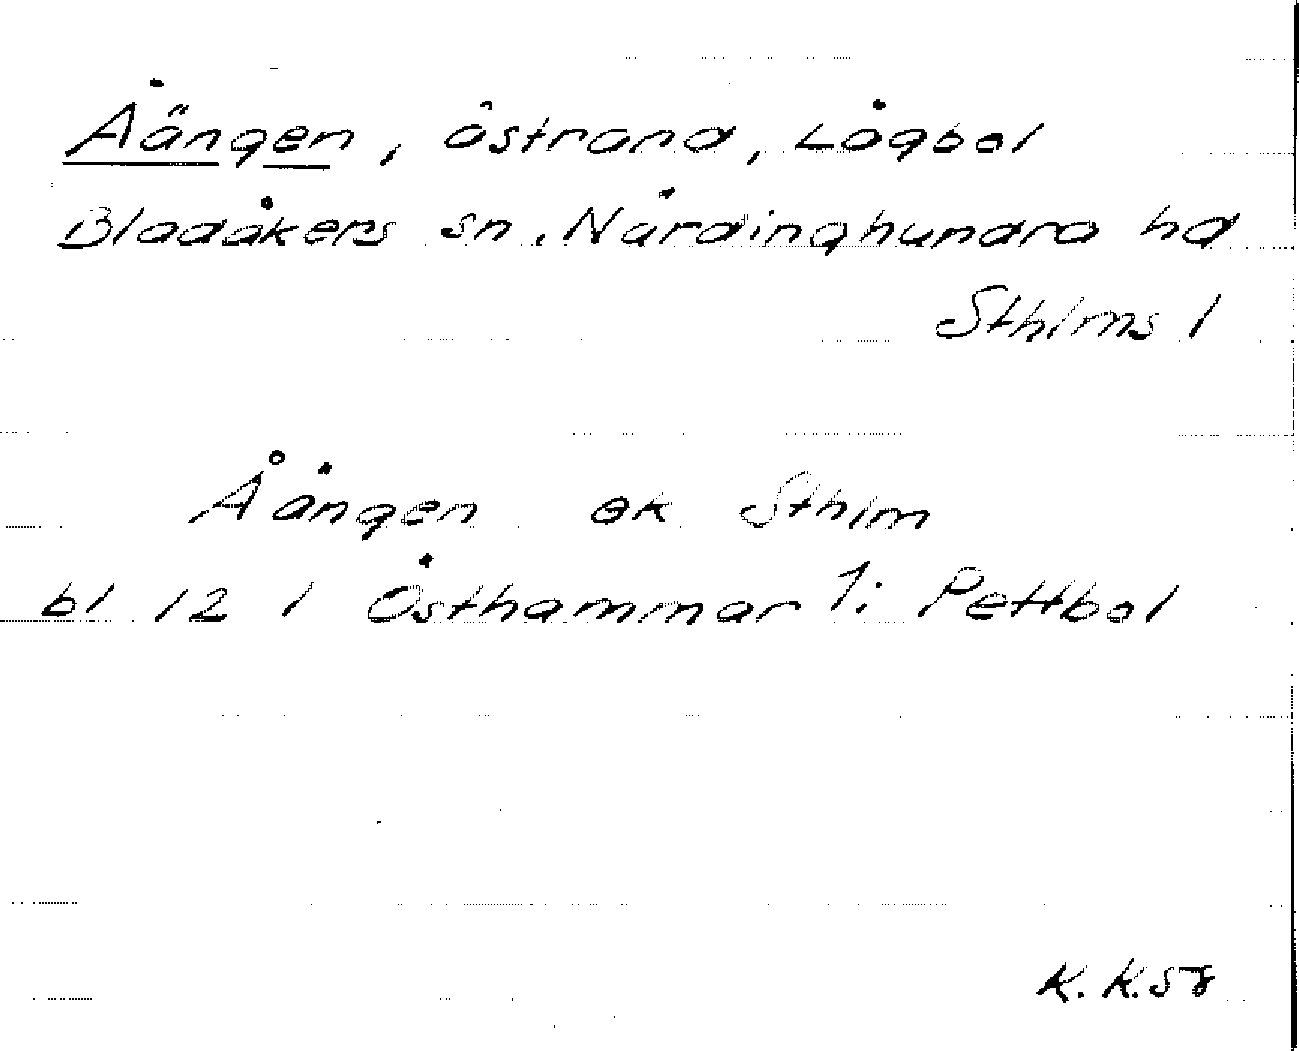 Åängen, åstrand, Lågbol
Bladåkers sn, Närdinghundra hd
Sthlms l
Åängen ek Sthlm
bl 12 i Östhammar 1: Pettbol
K. K. 58